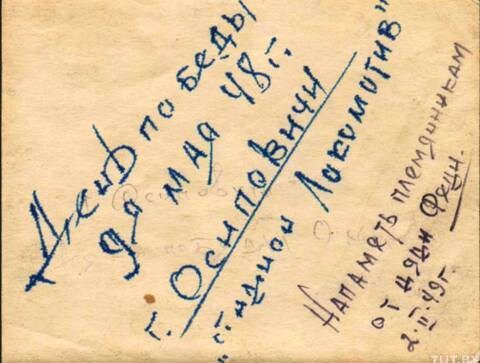 День победы
9го мая 48 г.
г. Осиповичи
"Стадион Локомотив"
На память племянникам
от дяди Феди.
2.II.49г.
TUT.BY